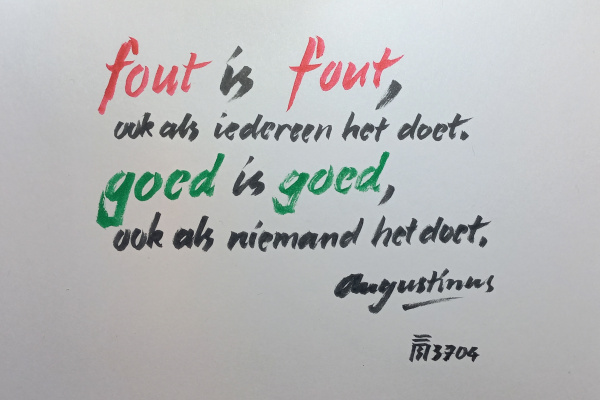 fout is fout,
ook als iedereen het doet.
goed is goed,
ook als niemand het doet.
Augustinus
3704